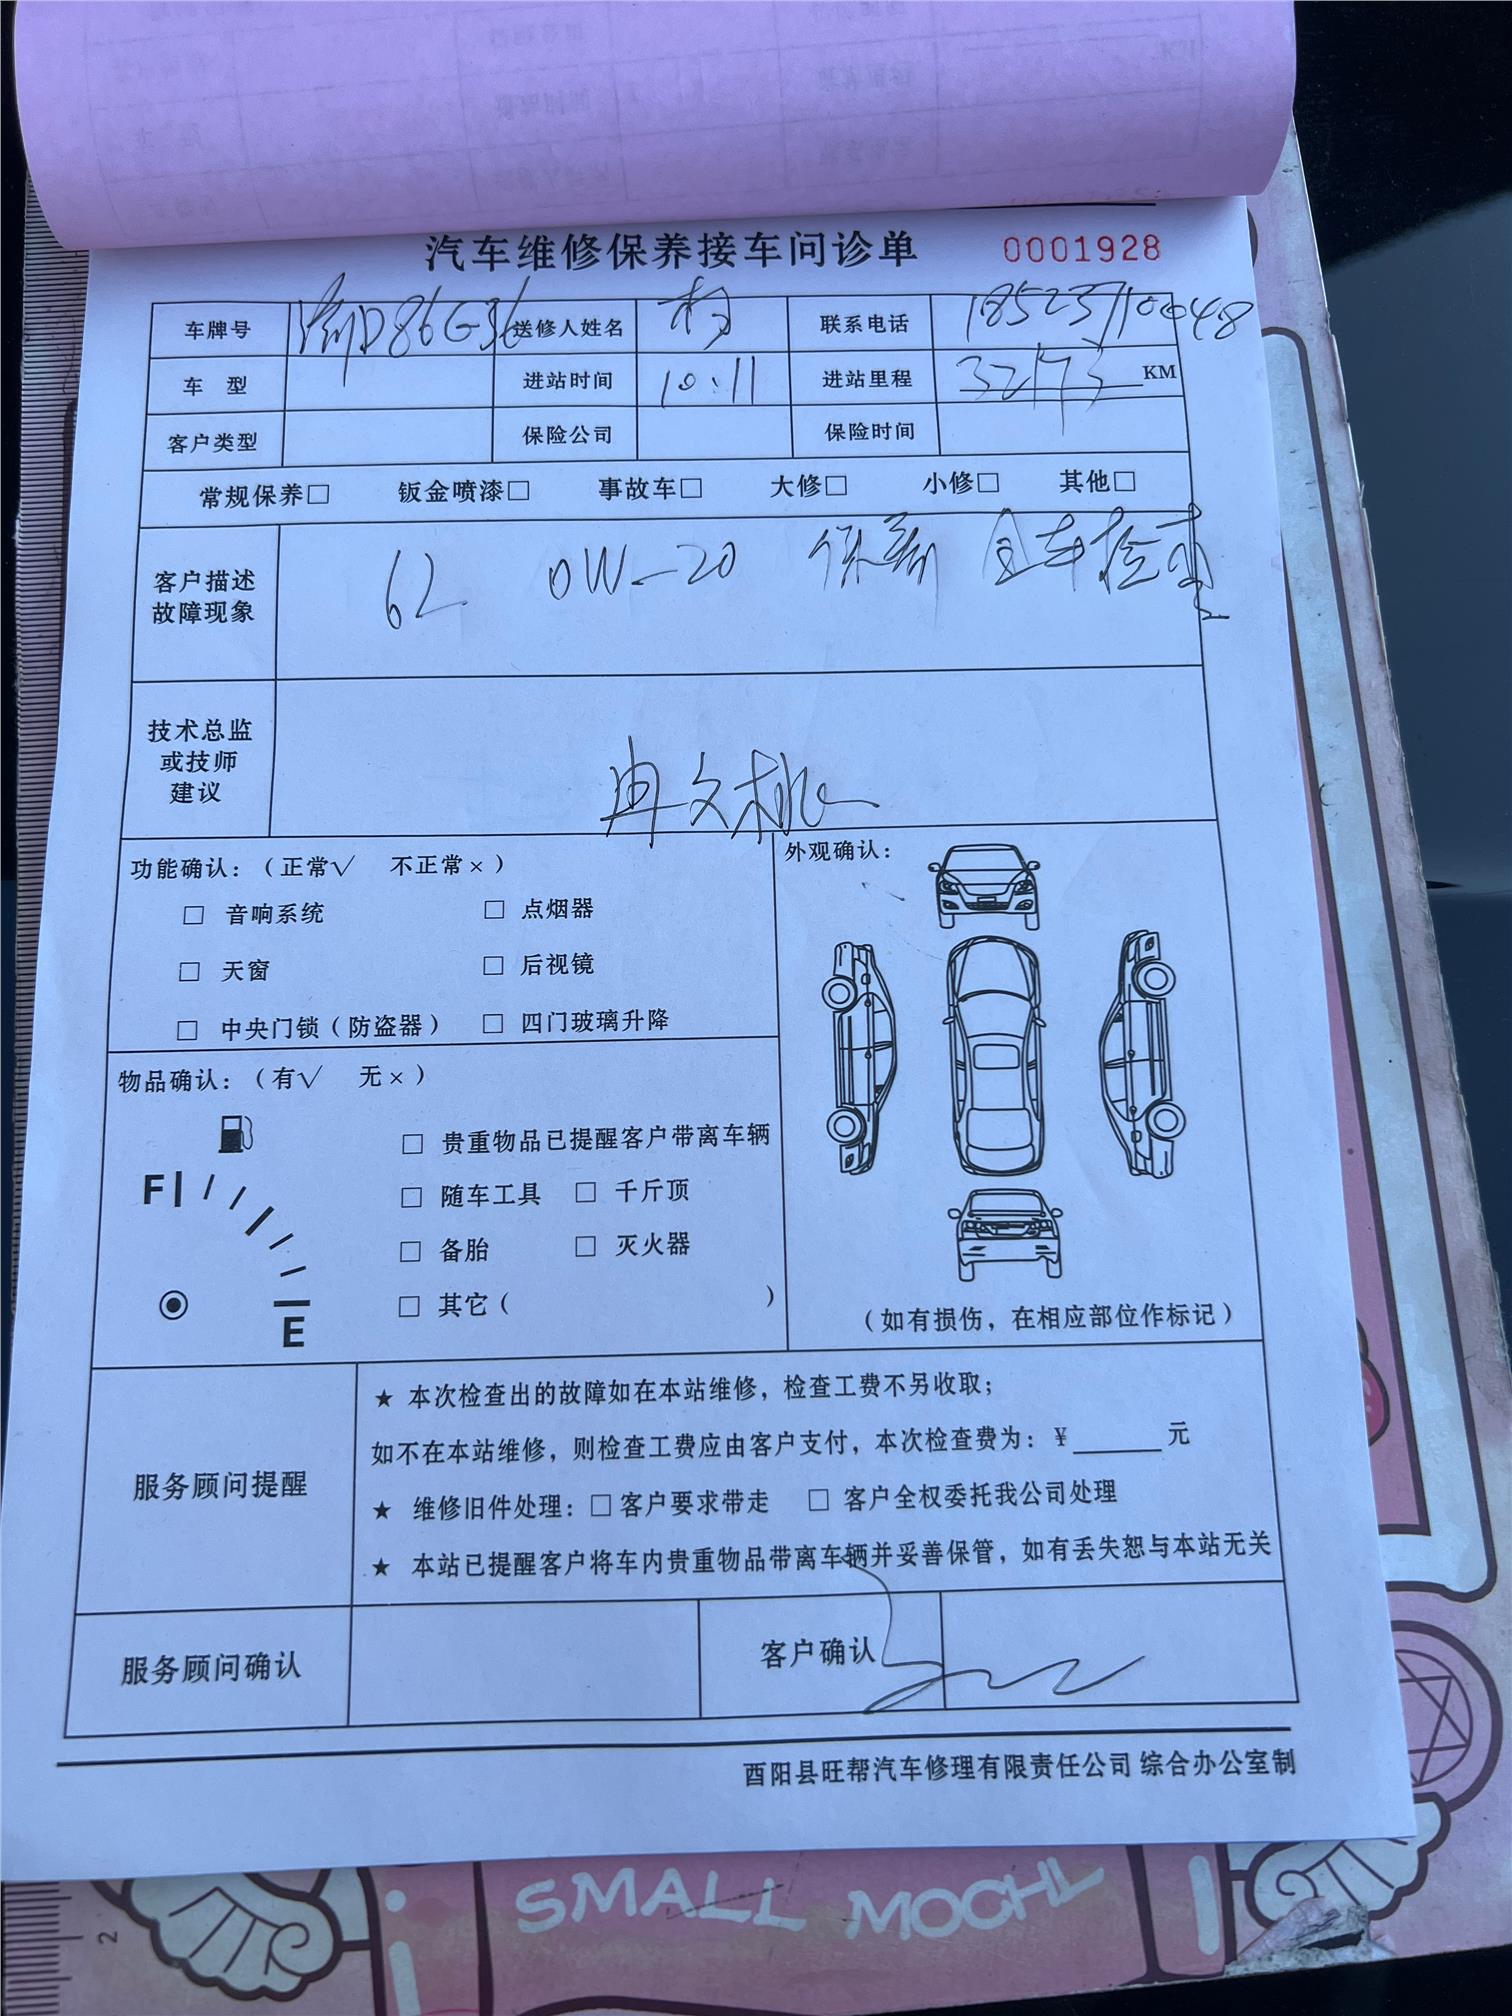 汽车维修保养接车问诊单 0001928
车牌号 渝D86G36 送修人姓名 杨 联系电话 18523710048
车 型 进站时间 10:11 进站里程 32173 KM
客户类型 保险公司 保险时间
常规保养□ 钣金喷漆□ 事故车□ 大修□ 小修□ 其他□
客户描述
故障现象
6L 0W-20 保养 全车检查
技术总监
或技师
建议
冉文桃
功能确认：（正常√ 不正常×）
□ 音响系统 □ 点烟器
□ 天窗 □ 后视镜
□ 中央门锁（防盗器） □ 四门玻璃升降
外观确认：
（如有损伤，在相应部位作标记）
物品确认：（有√ 无×）
F
E
□ 贵重物品已提醒客户带离车辆
□ 随车工具 □ 千斤顶
□ 备胎 □ 灭火器
□ 其它（ ）
服务顾问提醒
★ 本次检查出的故障如在本站维修，检查工费不另收取；
如不在本站维修，则检查工费应由客户支付，本次检查费为：¥______元
★ 维修旧件处理：□客户要求带走 □ 客户全权委托我公司处理
★ 本站已提醒客户将车内贵重物品带离车辆并妥善保管，如有丢失恕与本站无关
服务顾问确认 客户确认
酉阳县旺帮汽车修理有限责任公司 综合办公室制
SMALL MOCHI
2